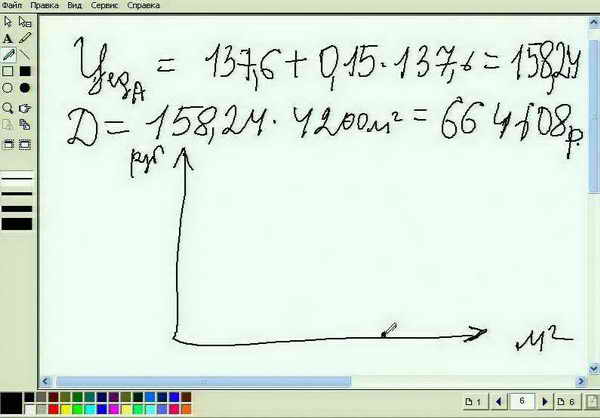 Файл Правка Вид Сервис Справка
Цед A = 137,6 + 0,15 · 137,6 = 158,24
Д = 158,24 · 4200 м² = 664608 р.
руб
м²
1 6 6